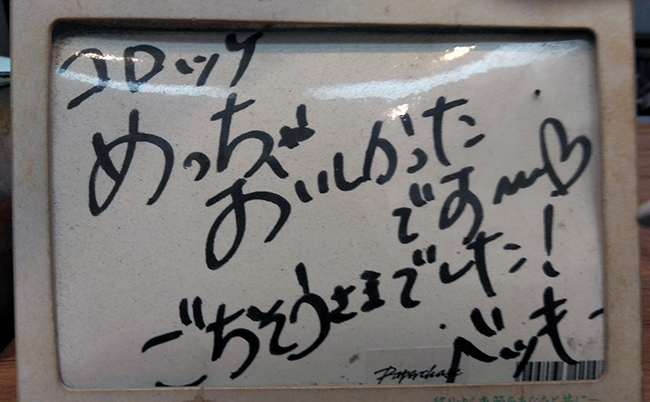 コロッケ
めっちゃ
おいしかった
です〜♡
ごちそうさまでした!
ベッキー
Paperchase